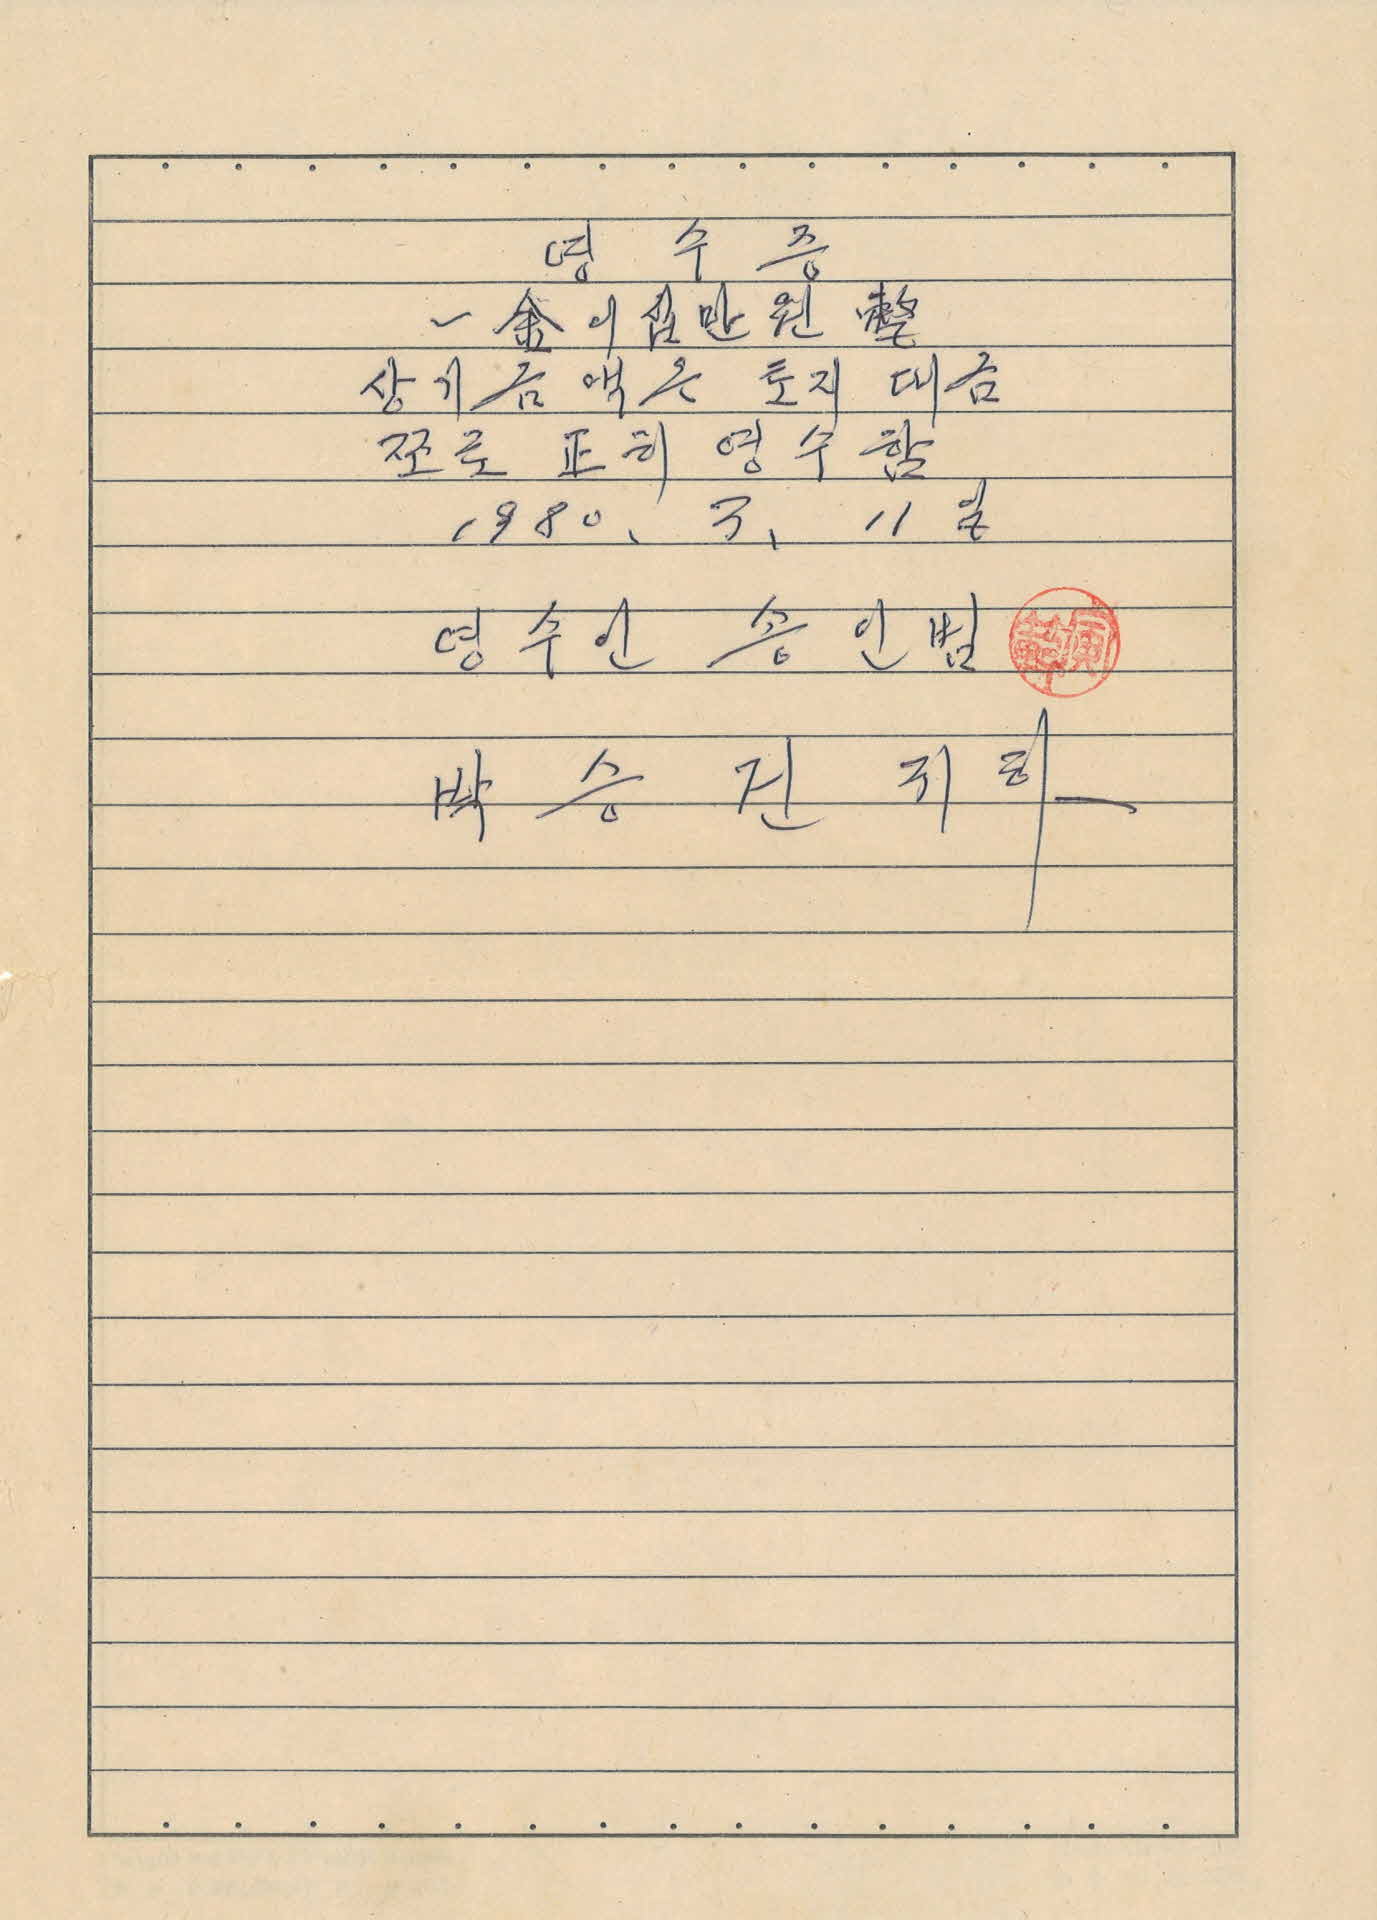 영수증
一金이십만원整
상기금액은 토지 대금
쪼로 正히 영수함
1980. 3. 11일
영수인 송인범
박승건 귀하